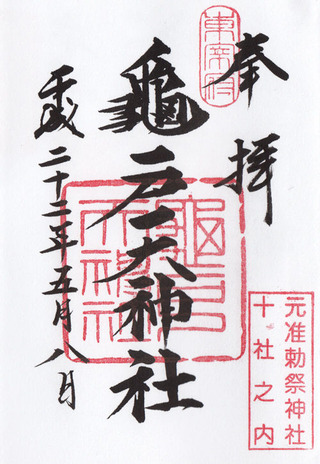 東宰府
奉拝
元准勅祭神社
十社之内
龜戸天神社
龜戸
天神社
平成二十二年五月八日